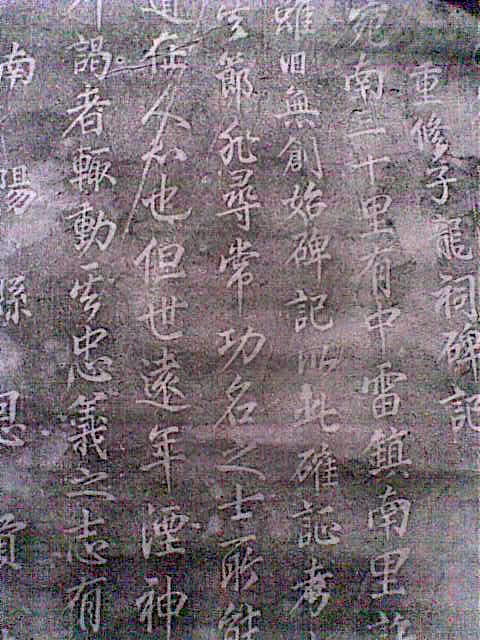 重修子龍祠碑記
宛南二十里有中雷鎮南里許
雖旧無創始碑記以此確証考
生節非尋常功名之士所能
道在人心也但世遠年湮神
謁者輒動其忠義之志有
南陽縣恩貢